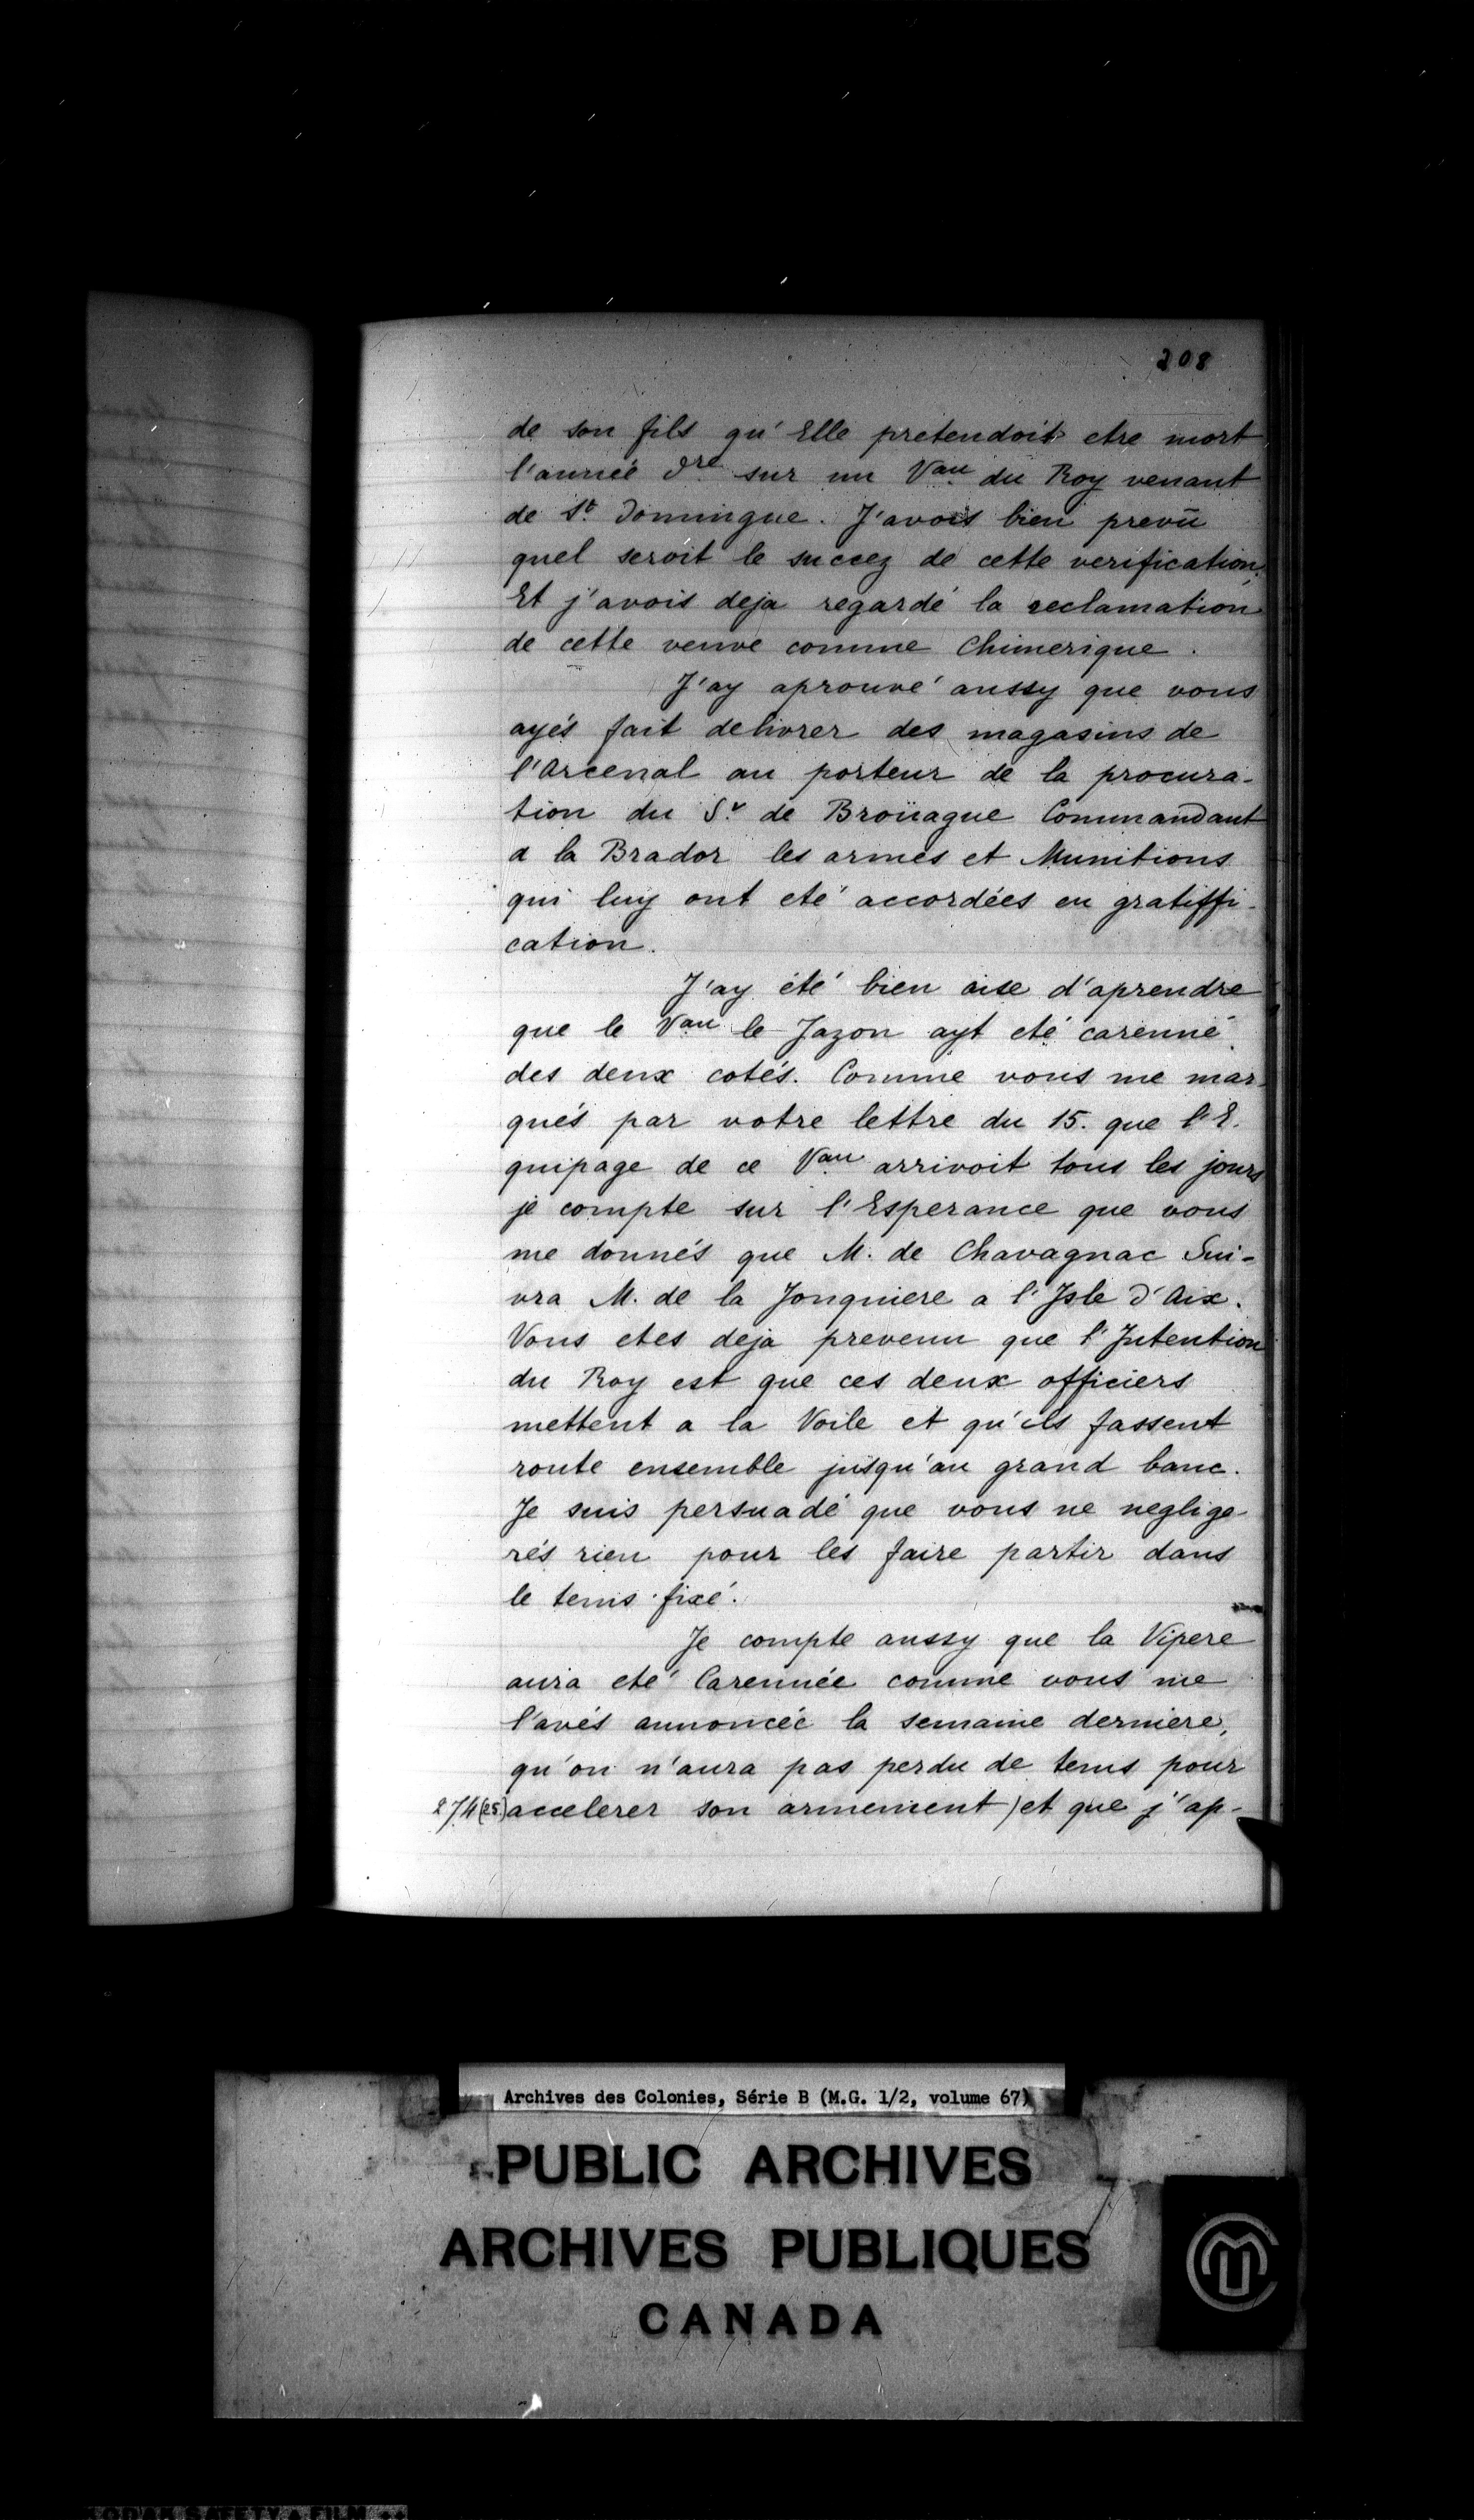 208
de son fils qu'Elle pretendoit etre mort
l'année dre sur un Vau du Roy venant
de St. Domingue. J'avois bien prevû
quel seroit le succez de cette verification,
Et j'avois deja regardé la reclamation
de cette veuve comme Chimerique.
J'ay aprouvé aussy que vous
ayés fait delivrer des magasins de
l'Arcenal au porteur de la procura-
tion du Sr. de Broüague Commandant
a la Brador les armes et Munitions
qui luy ont eté accordées en gratiffi-
cation.
J'ay été bien aise d'aprendre
que le Vau le Jazon ayt eté carenné
des deux cotés. Comme vous me mar-
qués par votre lettre du 15. que l'E-
quipage de ce Vau arrivoit tous les jours
je compte sur l'Esperance que vous
me donnés que M. de Chavagnac Sui-
vra M. de la Jonquiere a l'Isle d'Aix.
Vous etes deja prevenu que l'Intention
du Roy est que ces deux officiers
mettent a la Voile et qu'ils fassent
route ensemble jusqu'au grand banc.
Je suis persuadé que vous ne neglige-
rés rien pour les faire partir dans
le tems fixé.
Je compte aussy que la Vipere
aura eté Carennée comme vous me
l'avés annoncée la semaine derniere,
qu'on n'aura pas perdu de tems pour
274 (25) accelerer son armement) et que j'ap-
Archives des Colonies, Série B (M.G. 1/2, volume 67)
PUBLIC ARCHIVES
ARCHIVES PUBLIQUES
CANADA